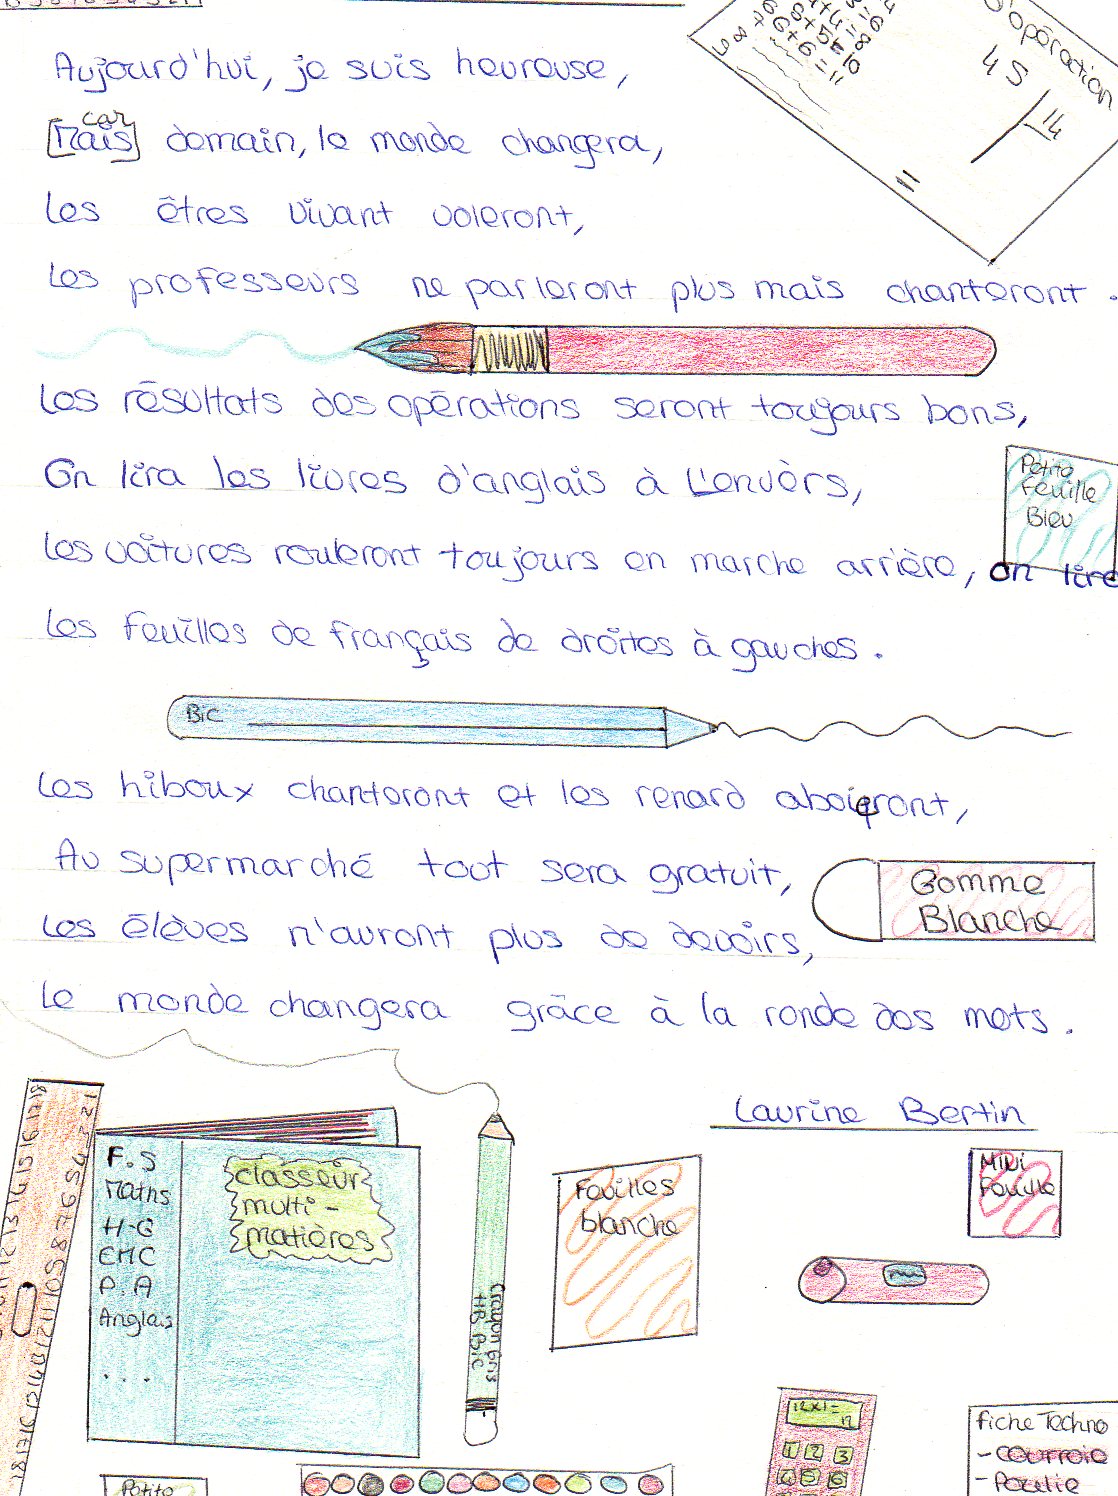 d'opération
45
14
=
6+6=11
Aujourd'hui, je suis heureuse,
car
[Mais] demain, le monde changera,
Les êtres vivant voleront,
Les professeurs ne parleront plus mais chanteront.
Les résultats des opérations seront toujours bons,
On lira les livres d'anglais à L'envèrs,
Petite
Feuille
Bleu
Les voitures rouleront toujours en marche arrière, on lire
Les feuilles de français de droites à gauches.
BiC
Les hiboux chanteront et les renard aboieront,
Au supermarché tout sera gratuit,
Gomme
Blanche
Les élèves n'auront plus de devoirs,
Le monde changera grâce à la ronde des mots.
Laurine Bertin
F.S
Maths
H-G
EMC
P.A
Anglais
...
classeur
multi-
matières
Crayon gris
HB BiC
Feuilles
blanche
Mini
Feuille
12x1=
12
1 2 3
4 5 6
fiche Techno
- courroie
- Poulie
Petite